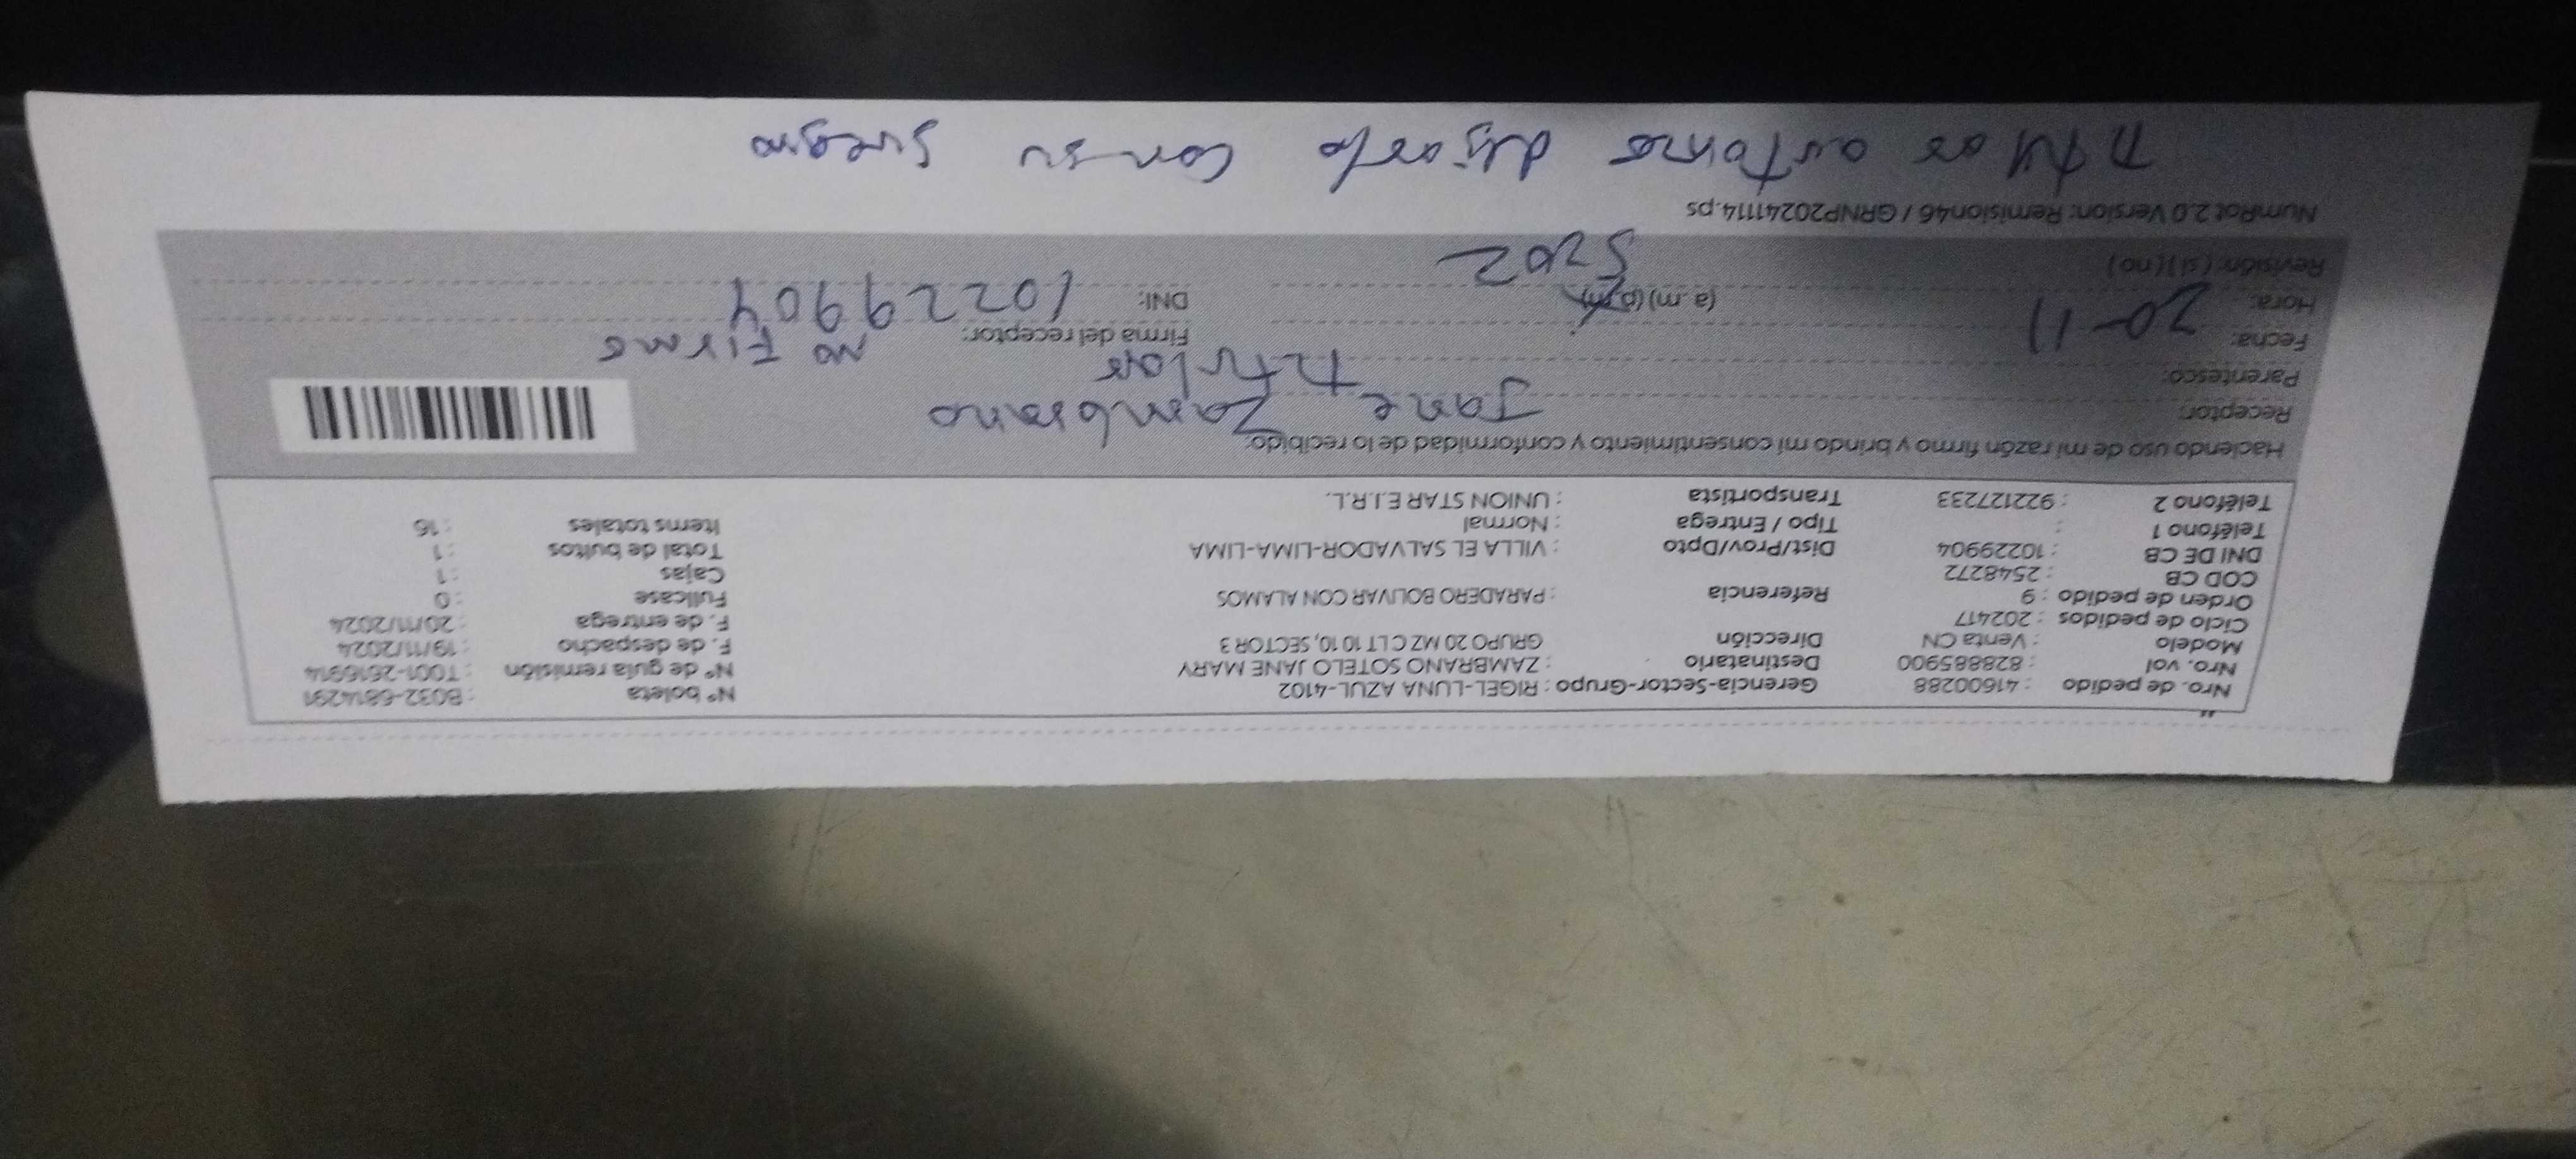 Nro. de pedido : 41600288 Gerencia-Sector-Grupo : RIGEL-LUNA AZUL-4102 N° boleta : B032-6814291
Nro. vol : 828885900 Destinatario : ZAMBRANO SOTELO JANE MARY N° de guía remisión : T001-2616914
Modelo : Venta CN Dirección GRUPO 20 MZ C LT 10 10, SECTOR 3 F. de despacho : 19/11/2024
Ciclo de pedidos : 202417 F. de entrega : 20/11/2024
Orden de pedido : 9 Referencia : PARADERO BOLIVAR CON ALAMOS Fullcase : 0
COD CB : 2548272 Cajas : 1
DNI DE CB : 10229904 Dist/Prov/Dpto : VILLA EL SALVADOR-LIMA-LIMA Total de bultos : 1
Teléfono 1 : Tipo / Entrega : Normal Items totales : 16
Teléfono 2 : 922127233 Transportista : UNION STAR E.I.R.L.
Haciendo uso de mi razón firmo y brindo mi consentimiento y conformidad de lo recibido.
Receptor: Jane Zambrano
Parentesco: Titular
Fecha: 20-11 Firma del receptor: no Firma
Hora: (a. m) (p.m) DNI: 10229904
Revisión: (si) (no) 5202
NumRot 2.0 Version: Remision46 / GRNP20241114.ps
Titular autoriza dejarlo con su